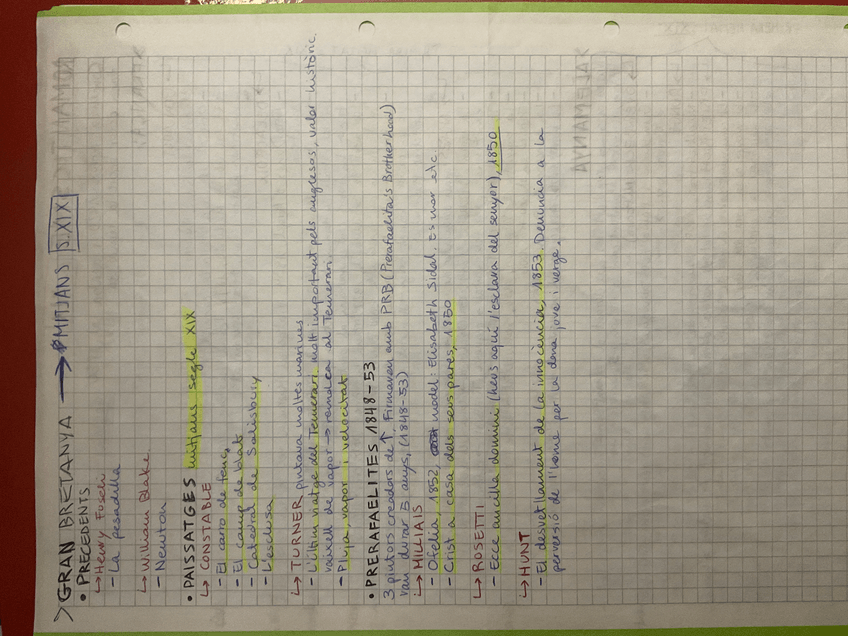 > GRAN BRETANYA → MITJANS S.XIX
• PRECEDENTS
↳ Henry Fuseli
- La pesadilla
↳ William Blake
- Newton
• PAISSATGES mitjans segle XIX
↳ CONSTABLE
- El carro de fenc,
- El camp de blat
- Catedral de Salisbury
- L'esclusa
↳ TURNER pintava moltes marines
- L'últim viatge del Temerari. molt important pels anglesos, valor històric.
vaixell de vapor → remolca al Temerari.
- Pluja, vapor i velocitat
• PRERAFAELITES 1848-53
3 pintors creadors de ↑. Firmaven amb PRB (Prerafaelita's Brotherhood)
van durar 5 anys, (1848-53)
↳ MILLIAIS
- Ofelia, 1852, model: Elisabeth Sidal. Es mor etc.
- Crist a casa dels seus pares, 1850
↳ ROSETTI
- Ecce ancilla domini (heus aquí l'esclava del senyor), 1850
↳ HUNT
- El desvetllament de la innocència, 1853. Denuncia a la
perversió de l'home per la dona jove i verge.